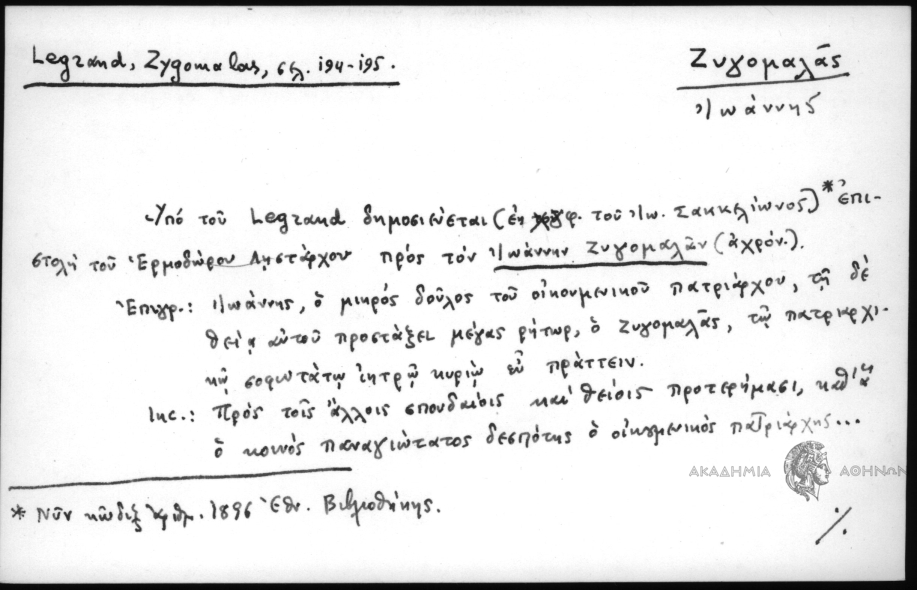 Legrand, Zygomalas, σελ. 194-195.
Ζυγομαλᾶς
Ἰωάννης
Ὑπό τοῦ Legrand δημοσιεύεται (ἐκ χφ. τοῦ Ἰω. Σακκελίωνος)* ἐπι-
στολή τοῦ Ἑρμοδώρου Ληστάρχου πρός τὸν Ἰωάννην Ζυγομαλᾶν (ἀχρόν.).
Ἐπιγρ.: Ἰωάννης, ὁ μικρός δοῦλος τοῦ οἰκουμενικοῦ πατριάρχου, τῇ δὲ
θείᾳ αὐτοῦ προστάξει μέγας ῥήτωρ, ὁ Ζυγομαλᾶς, τῷ πατριαρχι-
κῷ σοφωτάτῳ ἰητρῷ κυρίῳ εὖ πράττειν.
Inc.: Πρός τοῖς ἄλλοις σπουδαίοις καί θείοις προτερήμασι, καθ'
ὁ κοινός παναγιώτατος δεσπότης ὁ οἰκουμενικός πατριάρχης...
ΑΚΑΔΗΜΙΑ ΑΘΗΝΩΝ
* Νῦν κῶδιξ ἀριθμ. 1896 Ἐθν. Βιβλιοθήκης.
./.